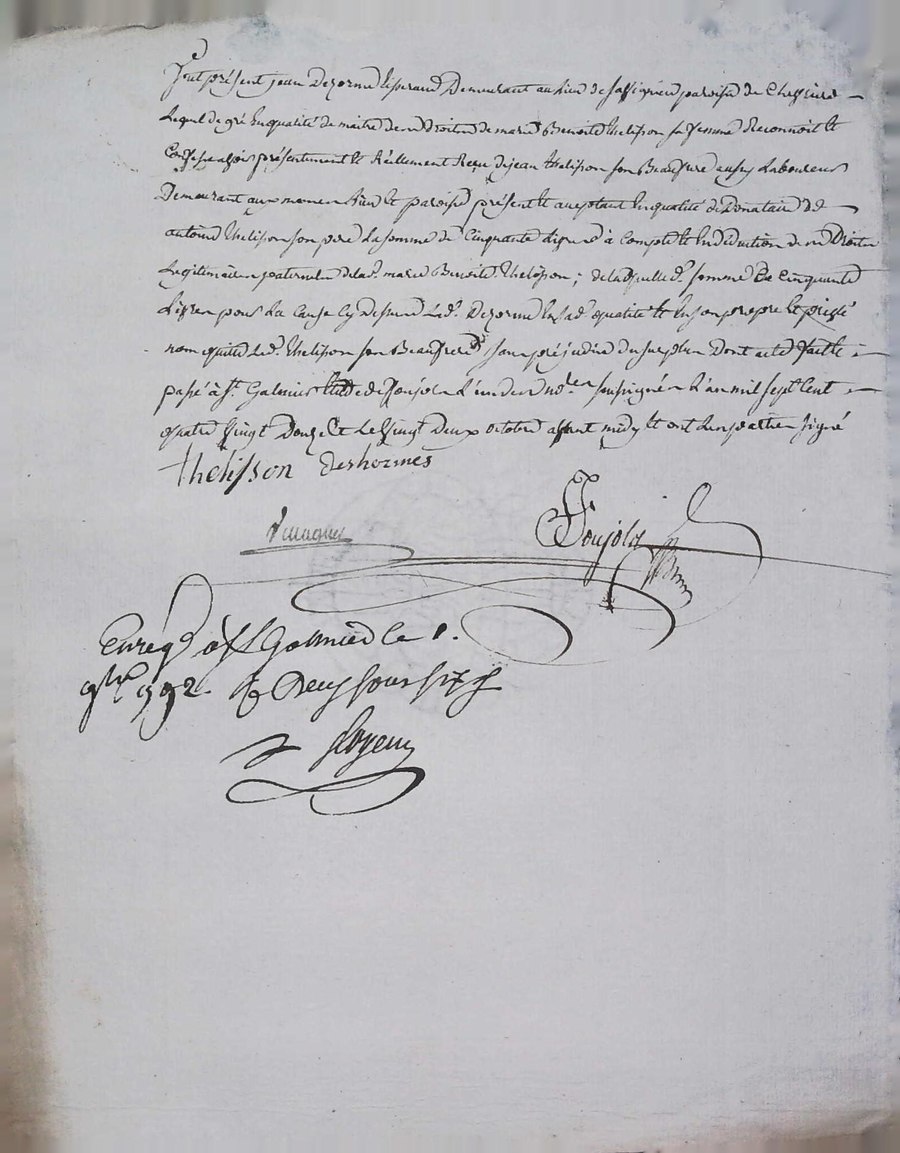 fut présent jean Dezorme tisserand Demeurant au lieu de paroisse de
Lequel de gré En qualité de maitre des Droits de marie Benoite thelisson sa femme Reconnoit et
Confesse avoir présentement et Réellement Reçu de jean thelisson son Beaufrere aussy Laboureur
Demeurant aux memes Lieu et paroisse présent et acceptant En qualité de Donataire de
antoine thelisson son pere La somme de Cinquante Livres à Compte et En déduction des Droits
Legitimaires paternels de lad. marie Benoite thelisson ; de laquelle d. somme De cinquante
Livres pour La Cause Cy dessus Led. Dezorme En sad. qualité et En son propre et privé
nom quitte Led. thelisson son Beaufrere sans préjudice du surplus Dont acte faitte
passé à St. Galmier Etude de Poujol L'un des no.res soussignés L'an mil sept Cent
quatre Vingt Douze Et Le Vingt Deux octobre avant midy Et ont Les parties signé
thelisson Deshormes
Poujol
Enregé à St Galmier le 1.
9bre 1792.